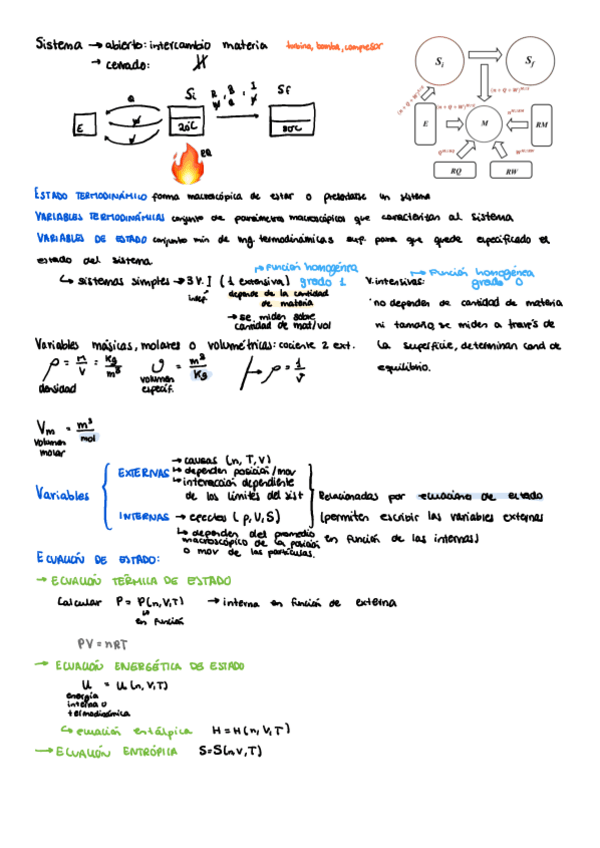 Sistema → abierto: intercambio materia turbina, bomba, compresor
→ cerrado:
Si
Sf
E
20°C
80°C
RQ
Si
Sf
E
M
RM
RQ
RW
ESTADO TERMODINÁMICO forma macroscópica de estar o presentarse un sistema
VARIABLES TERMODINÁMICAS conjunto de parámetros macroscópicos que caracterizan al sistema
VARIABLES DE ESTADO conjunto min de mg. termodinámicas suf. para que quede especificado el
estado del sistema
↳ sistemas simples → 3 V. I (1 extensiva)
indep
Función homogénea
grado 1
depende de la cantidad
de materia
→ se miden sobre
cantidad de mat/vol
V. intensivas:
Función homogénea
grado 0
· no dependen de cantidad de materia
ni tamaño, se miden a través de
la superficie, determinan cond de
equilibrio.
Variables másicas, molares o volumétricas: cociente 2 ext.
ρ = m/V = Kg/m³
densidad
υ = m³/Kg
volumen
específ.
ρ = 1/υ
Vm = m³/mol
volumen
molar
Variables
EXTERNAS
→ causas (n, T, V)
↳ dependen posición/mov
↳ interacción dependiente
de los límites del sist
INTERNAS → efectos (p, U, S)
↳ dependen del promedio
macroscópico de la posición
o mov de las partículas.
Relacionadas por ecuaciones de estado
(permiten escribir las variables externas
en función de las internas)
ECUACIÓN DE ESTADO:
→ ECUACIÓN TÉRMICA DE ESTADO
Calcular P = P(n,V,T) → interna en función de externa
en función
PV = nRT
→ ECUACIÓN ENERGÉTICA DE ESTADO
U = U(n,V,T)
energía
interna o
termodinámica
↳ ecuación entálpica H = H(n,V,T)
→ ECUACIÓN ENTRÓPICA S=S(n,V,T)